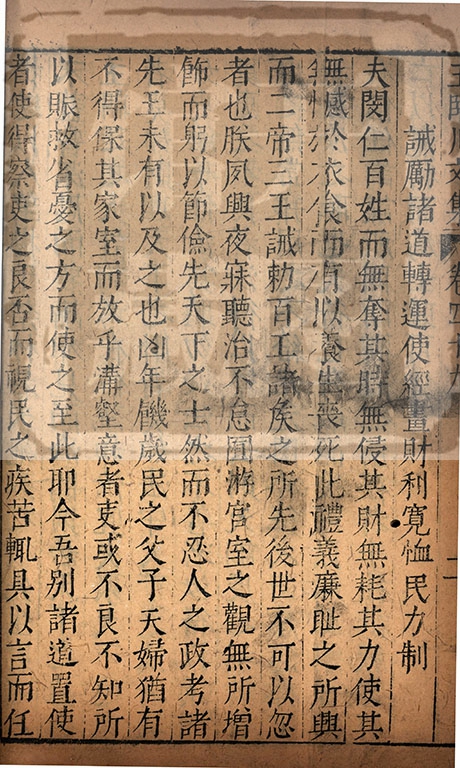 王臨川文集 卷四十九
誡勵諸道轉運使經畫財利寬恤民力制
夫閔仁百姓而無奪其時無侵其財無耗其力使其
無憾於衣食而有以養生喪死此禮義廉恥之所興
而二帝三王誡勅百工諸侯之所先後世不可以忽
者也朕夙興夜寐聽治不怠囿游宫室之觀無所增
飾而躬以節儉先天下之士然而不忍人之政考諸
先王未有以及之也凶年饑歲民之父子夫婦猶有
不得保其家室而放乎溝壑意者吏或不良不知所
以賑救省憂之方而使之至此耶今吾别諸道置使
者使得察吏之良否而視民之疾苦輒具以言而任